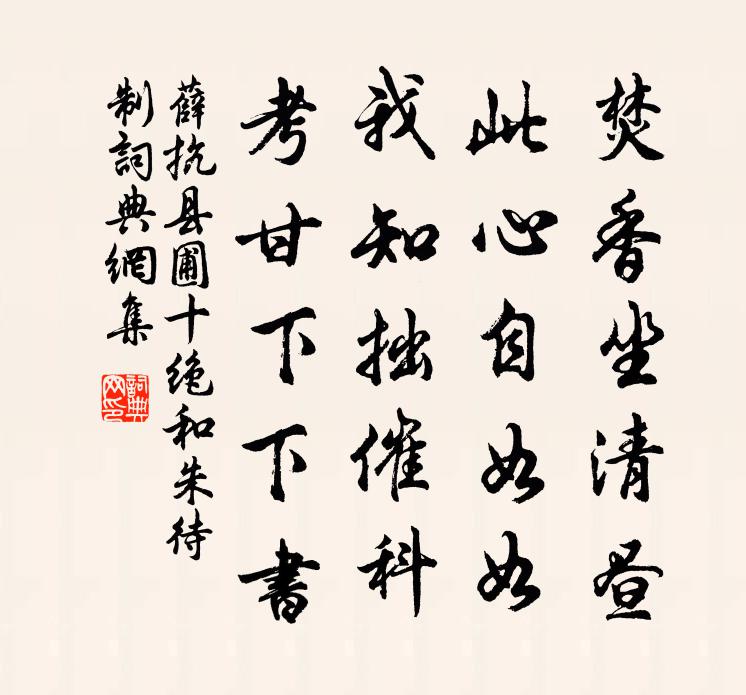 焚香坐清昼
此心自如如
我知拙催科
考甘下下書
薛抗县圃十绝和朱待
制詞典網集
詞典网印